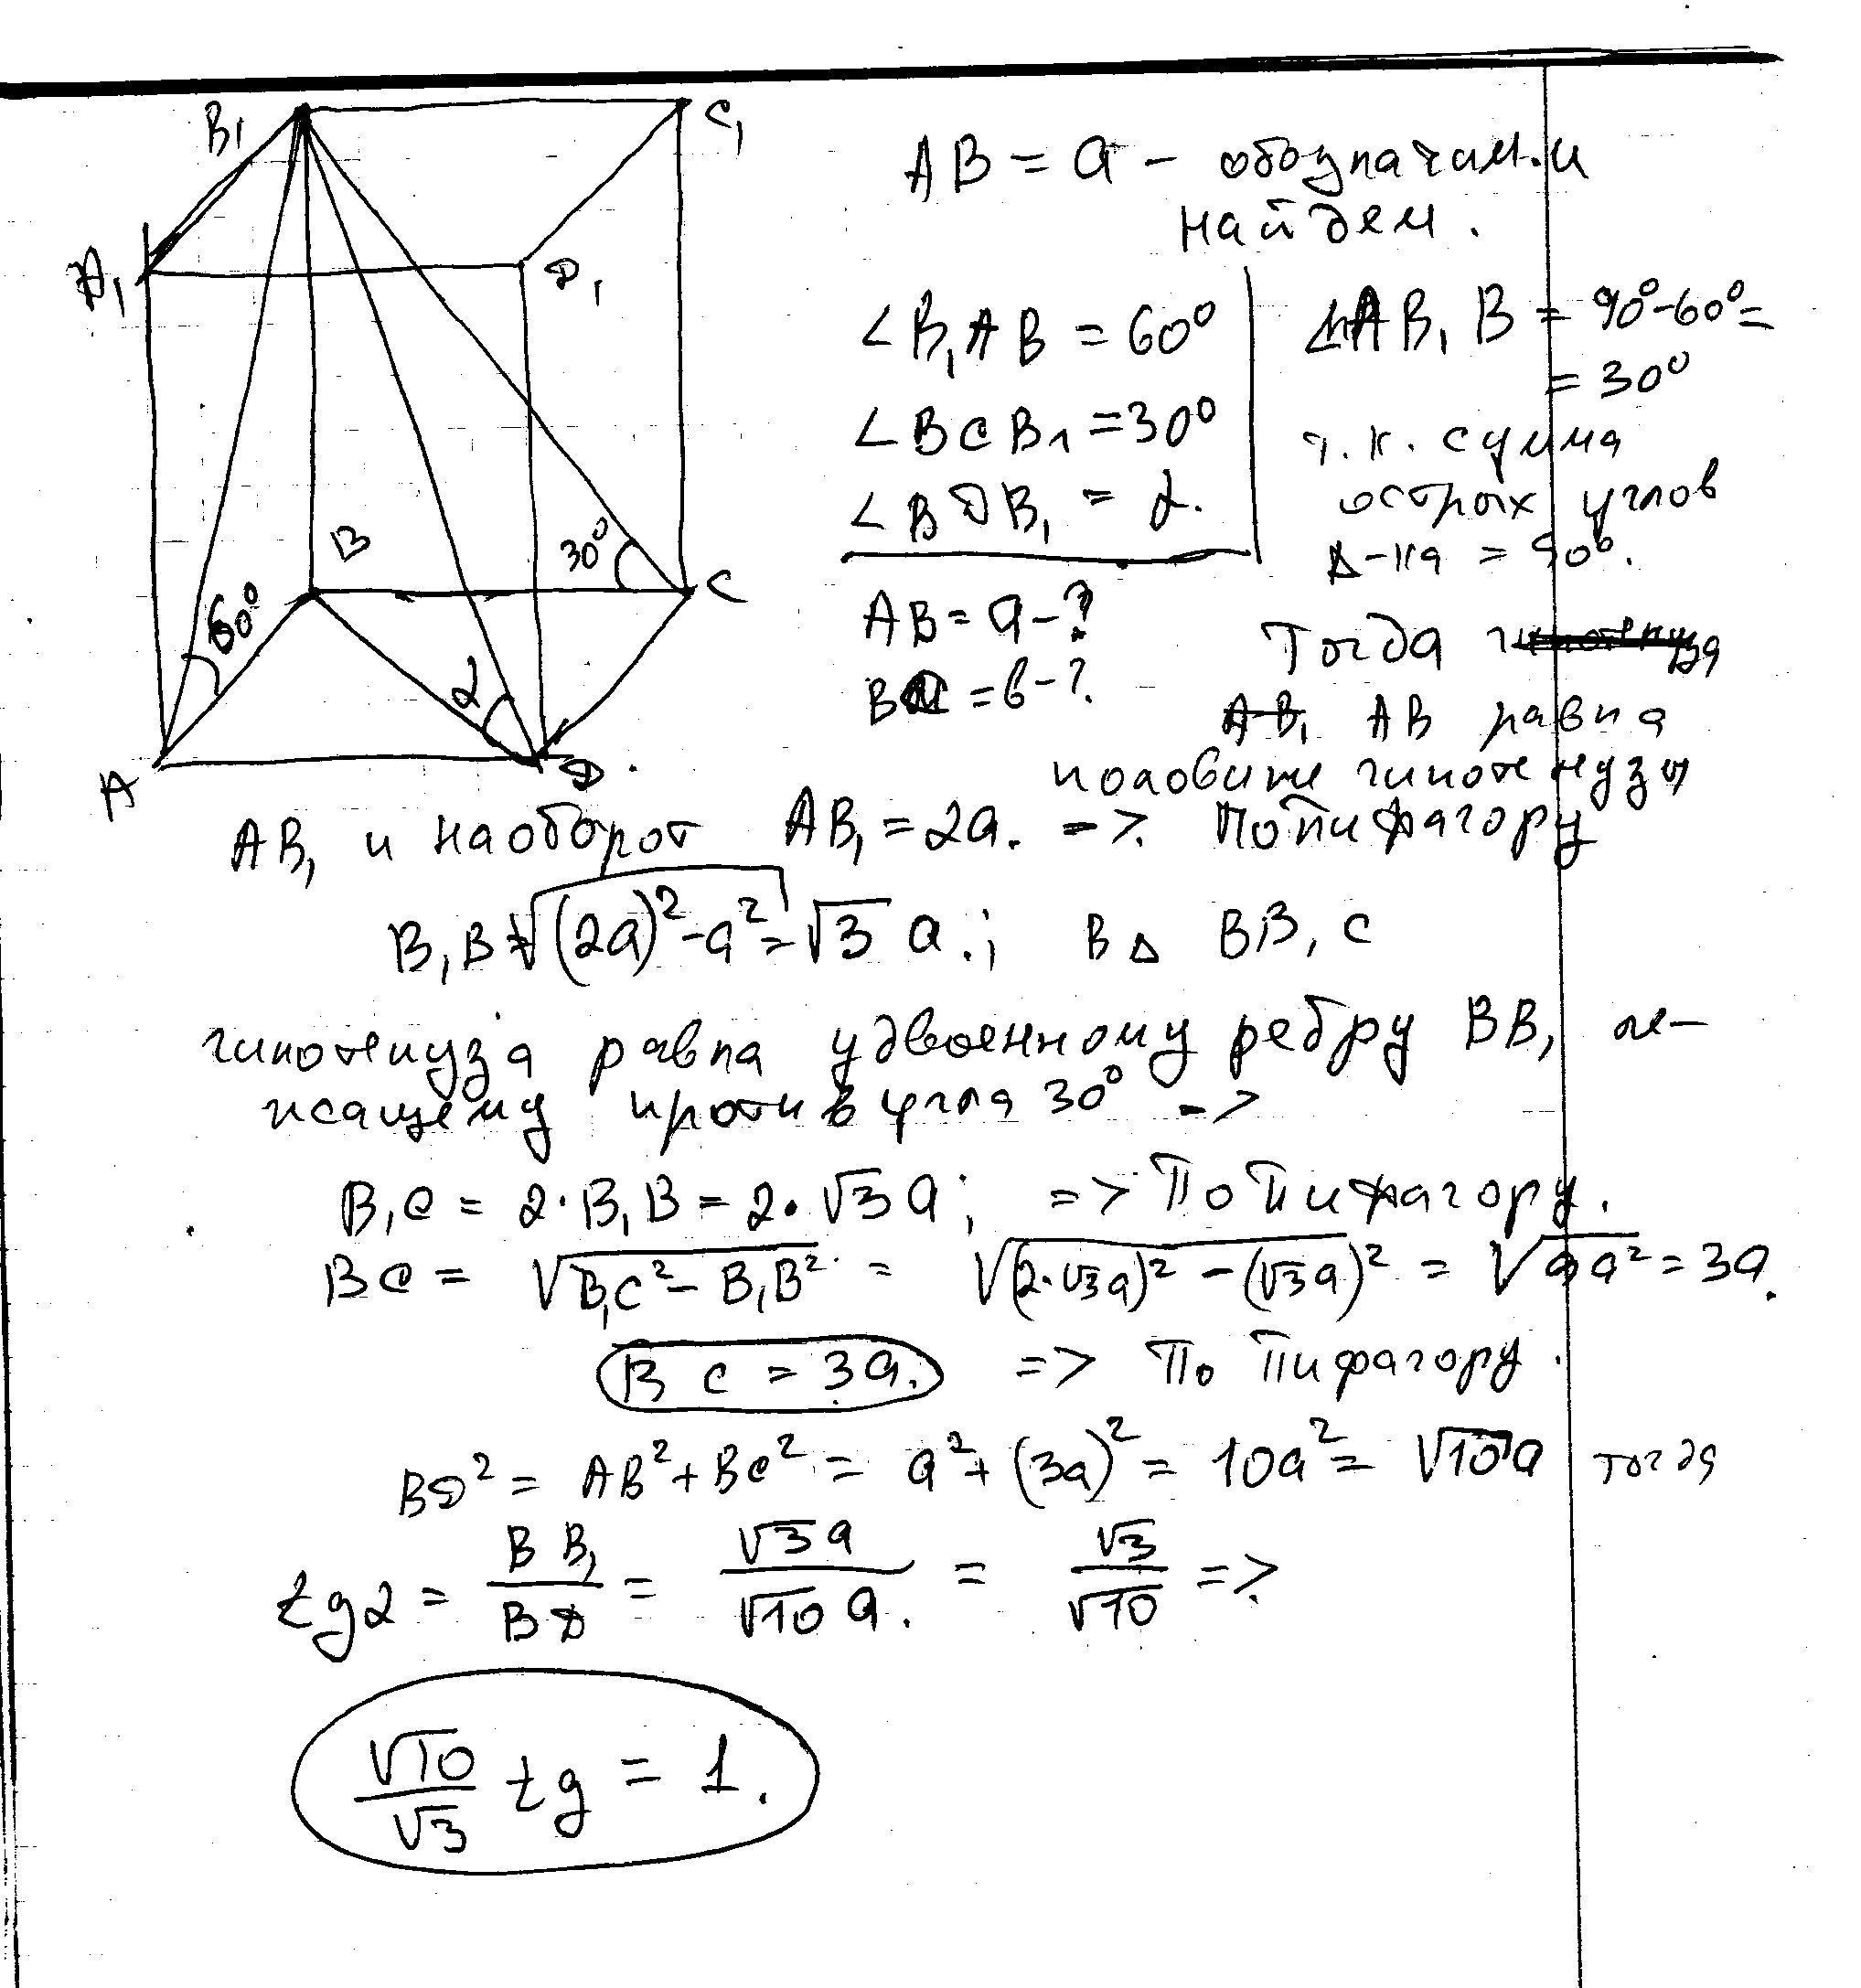 B₁
C₁
A₁
D₁
B
30°
C
60°
α
A
D.
AB = a - обозначим.и
найдем.
∠B₁AB = 60°
∠BCB₁ = 30°
∠BDB₁ = α.
AB = a - ?
BC = b - ?.
∠AB₁B = 90°-60°=
= 30°
т.к. сумма
острых углов
Δ-ка = 90°.
Тогда
AB₁ AB равна
половине гипотенузы
AB₁ и наоборот AB₁ = 2a. => По Пифагору
B₁B = √(2a)²-a² = √3 a.; в Δ BB₁C
гипотенуза равна удвоенному ребру BB₁ ле-
жащему против угла 30° ->
B₁C = 2·B₁B = 2·√3a; => По Пифагору.
BC = √B₁C² - B₁B² = √(2·√3a)² - (√3a)² = √9a² = 3a.
BC = 3a. => По Пифагору.
BD² = AB² + BC² = a² + (3a)² = 10a² = √10a тогда
tgα = BB₁/BD = √3a/√10a. = √3/√10 =>
√10/√3 tg = 1.